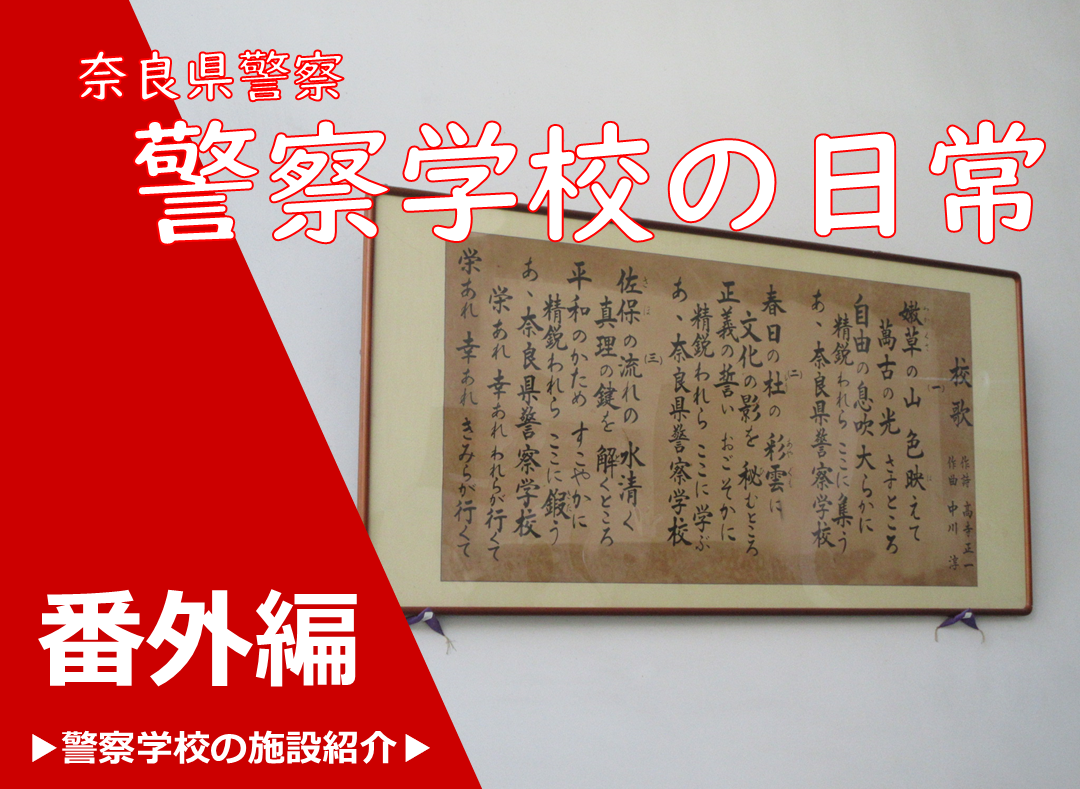 奈良県警察
警察学校の日常
校歌
作詩 高寺正一
作曲 中川 淳
(一)
嫩草の山 色映えて
萬古の光 さすところ
自由の息吹 大らかに
精鋭われら ここに集う
あゝ奈良県警察学校
(二)
春日の杜の 彩雲に
文化の影を 秘むところ
正義の誓い おごそかに
精鋭われら ここに学ぶ
あゝ奈良県警察学校
(三)
佐保の流れの 水清く
真理の鍵を 解くところ
平和のかため すこやかに
精鋭われら ここに鍛う
あゝ奈良県警察学校
栄あれ 幸あれ われらが行くて
栄あれ 幸あれ きみらが行くて
番外編
▶警察学校の施設紹介▶